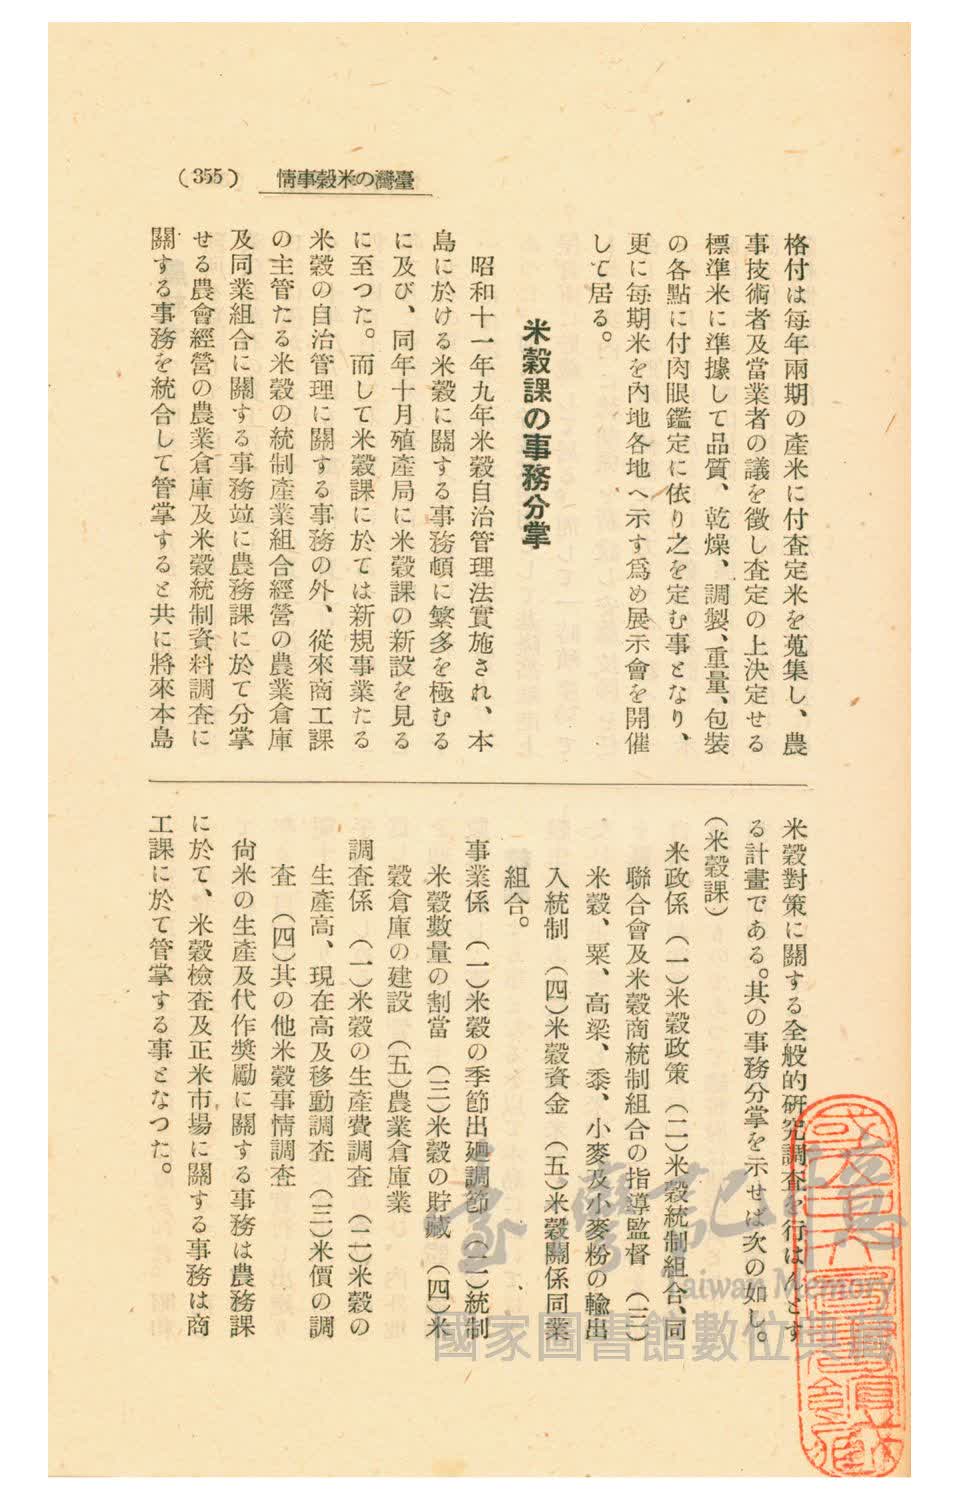 (355) 情事穀米の灣臺
格付は每年兩期の產米に付査定米を蒐集し、農
事技術者及當業者の議を徵し査定の上決定せる
標準米に準據して品質、乾燥、調製、重量、包裝
の各點に付肉眼鑑定に依り之を定む事となり、
更に每期米を內地各地へ示す爲め展示會を開催
して居る。
米穀課の事務分掌
昭和十一年九年米穀自治管理法實施され、本
島に於ける米穀に關する事務頓に繁多を極むる
に及び、同年十月殖產局に米穀課の新設を見る
に至つた。而して米穀課に於ては新規事業たる
米穀の自治管理に關する事務の外、從來商工課
の主管たる米穀の統制產業組合經營の農業倉庫
及同業組合に關する事務竝に農務課に於て分掌
せる農會經營の農業倉庫及米穀統制資料調査に
關する事務を統合して管掌すると共に將來本島
米穀對策に關する全般的硏究調査を行はんとす
る計畫である。其の事務分掌を示せば次の如し。
(米穀課)
米政係 (一)米穀政策 (二)米穀統制組合、同
聯合會及米穀商統制組合の指導監督 (三)
米穀、粟、高梁、黍、小麥及小麥粉の輸出
入統制 (四)米穀資金 (五)米穀關係同業
組合。
事業係 (一)米穀の季節出廻調節 (二)統制
米穀數量の割當 (三)米穀の貯藏 (四)米
穀倉庫の建設 (五)農業倉庫業
調査係 (一)米穀の生產費調査 (二)米穀の
生產高、現在高及移動調査 (三)米價の調
査 (四)其の他米穀事情調査
尙米の生產及代作獎勵に關する事務は農務課
に於て、米穀檢査及正米市場に關する事務は商
工課に於て管掌する事となつた。
臺灣記憶
Taiwan Memory
國家圖書館數位典藏